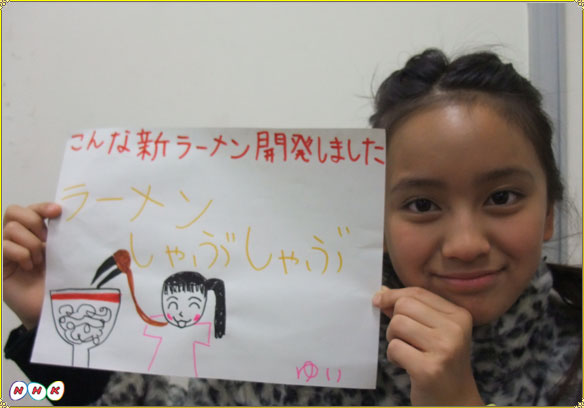 こんな新ラーメン開発しました
ラーメン
しゃぶしゃぶ
ゆい
NHK